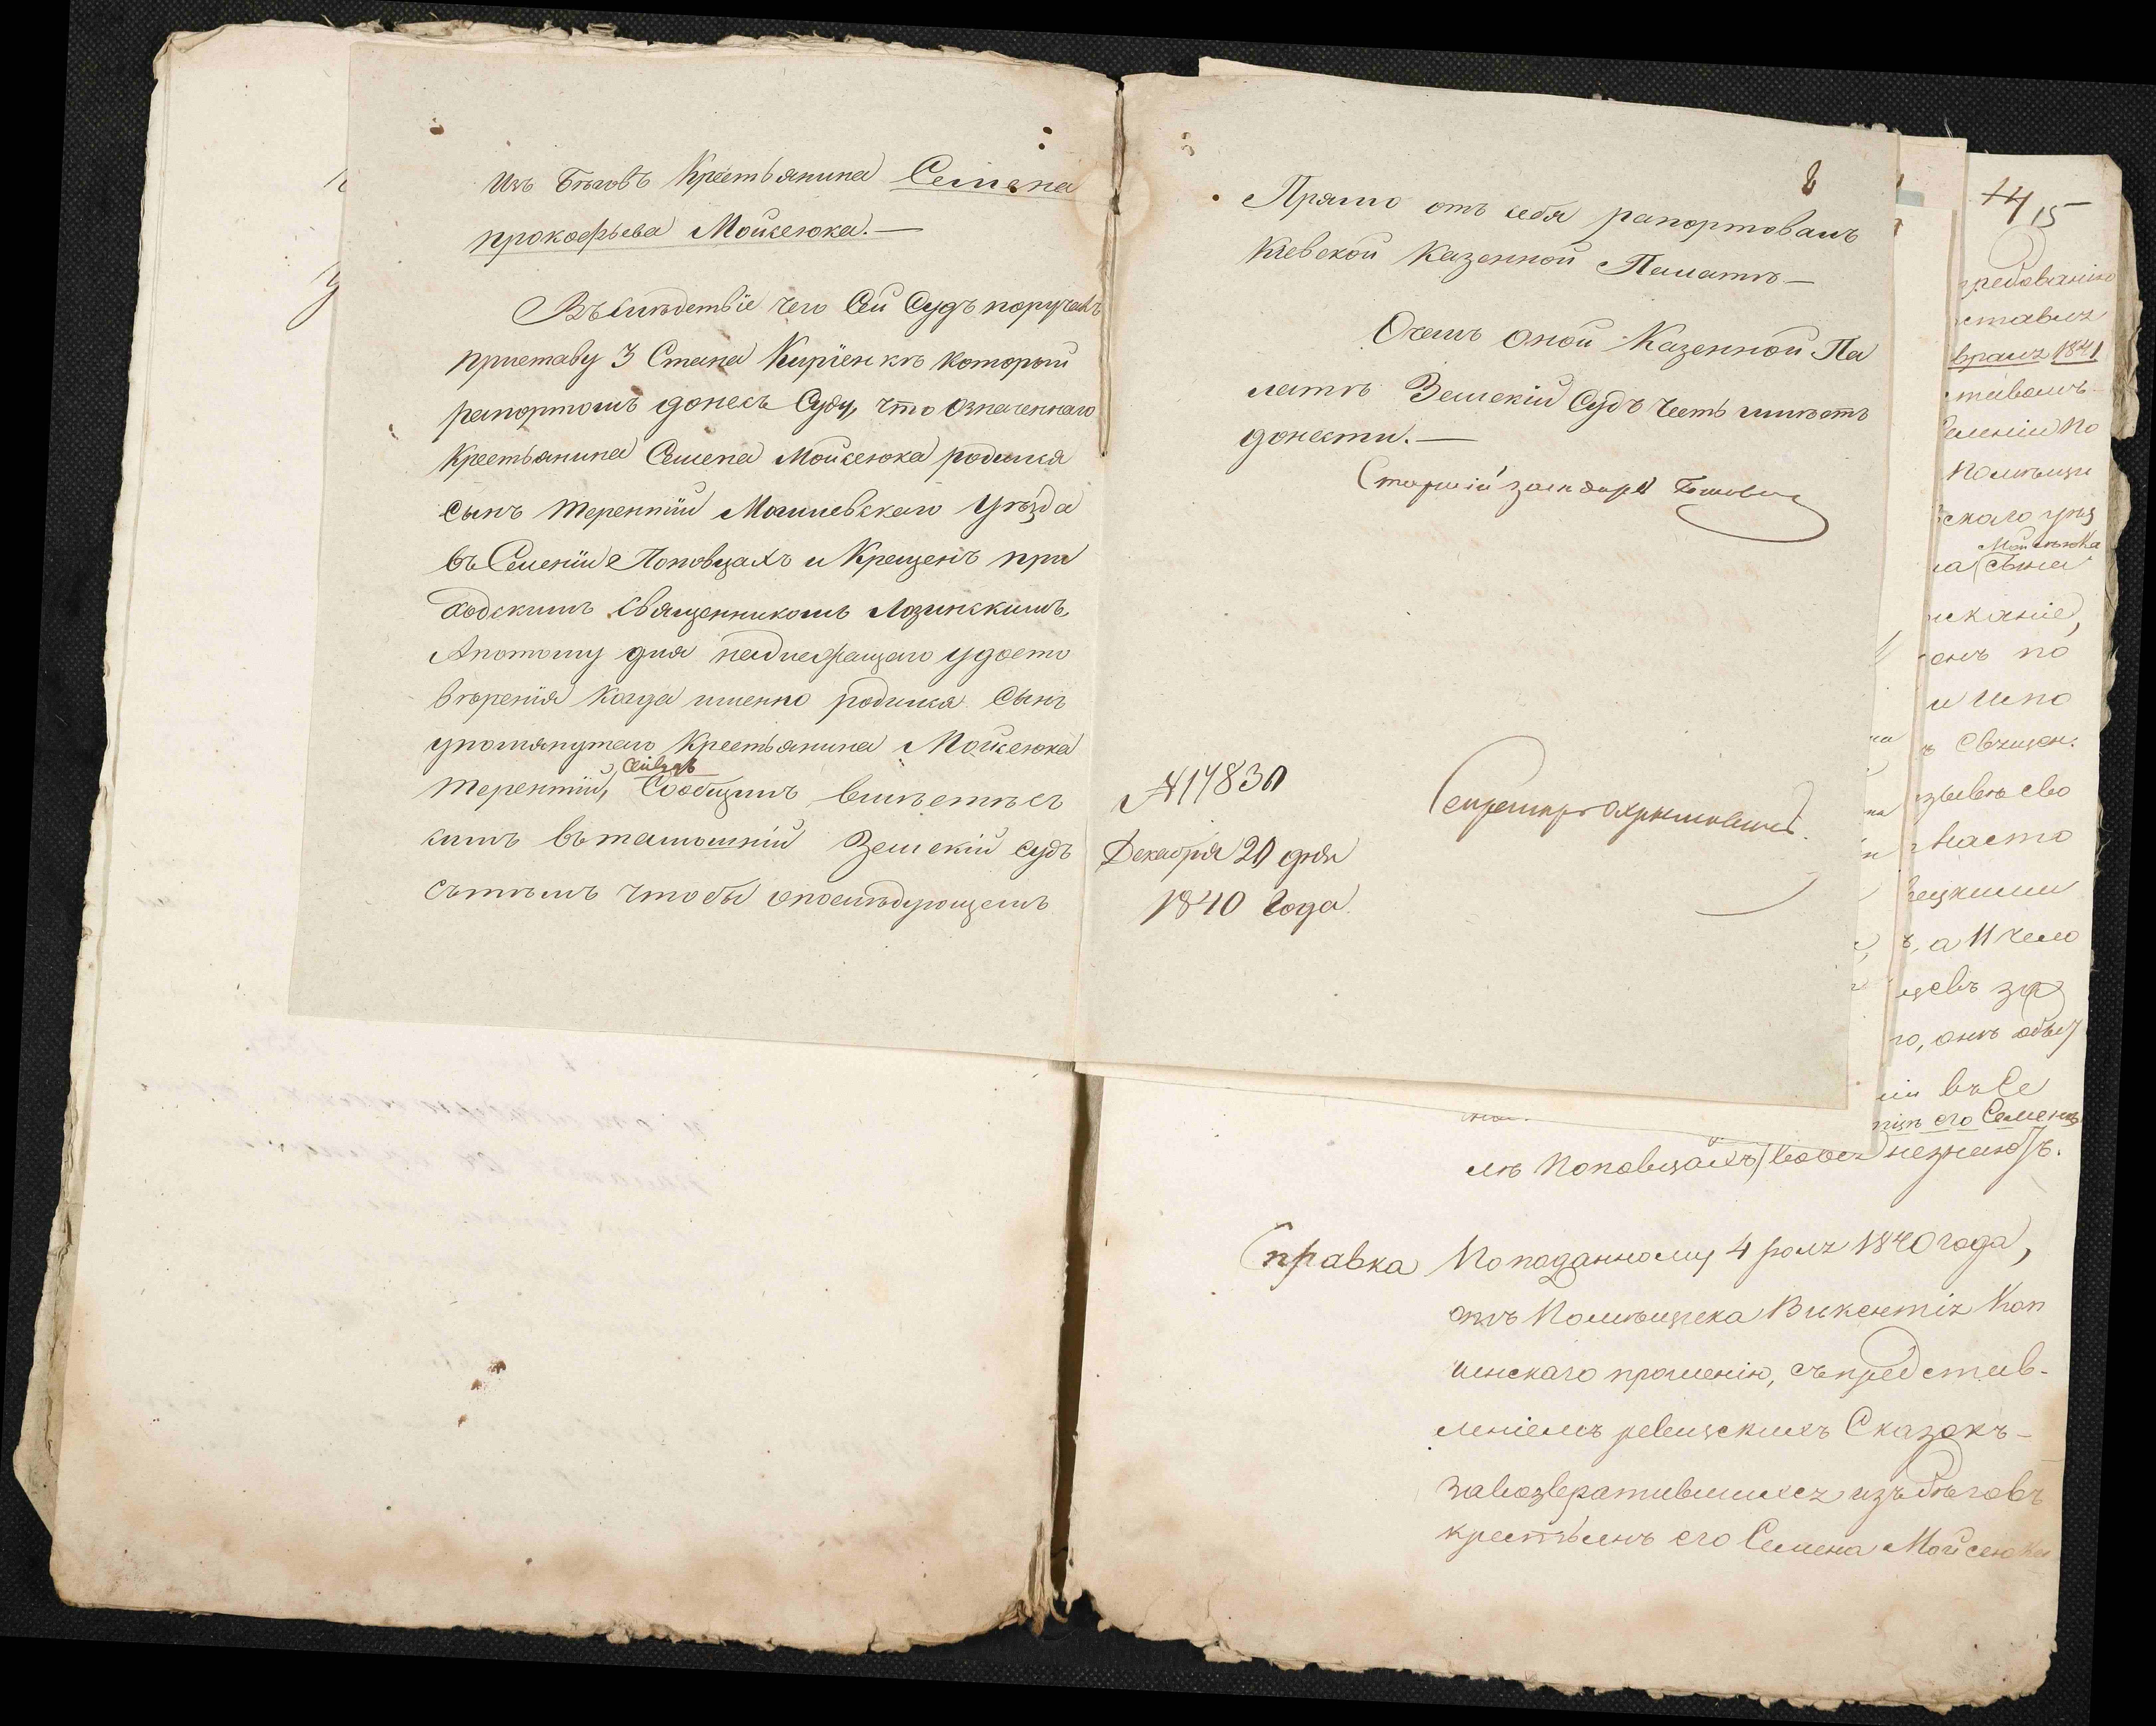 Изъ Бѣговъ Крестьянина Семена
прокофьева Мойсеюка. —
Въ слѣдствіе чего Сей Судъ поручалъ
приставу 3 Стана Киріенкѣ который
рапортомъ донесъ Суду, что означеннаго
Крестьянина Семена Мойсеюка родился
сынъ терентій Могилевскаго Уѣзда
въ Селеніи Поповцахъ и Крещенъ при
ходскимъ священникомъ Лозинскимъ,
Апотому для надлежащаго удосто
вѣренія когда именно родился Сынъ
упомянутаго Крестьянина Мойсеюка
терентій, Сообщилъ
симъ въ тамошній Земскій судъ
сътѣмъ чтобы опослѣдующемъ
8
Прямо отъ себя рапортовалъ
Кіевской Казенной Палатѣ —
Очемъ оной Казенной Па
латѣ Земскій Судъ честь имѣетъ
донести. —
Старшій
№ 17830
Секретарь
Декабря 20 дня
1840 Года
14 15
требованію
1841
еленіи по
помѣщи
скаго уѣз
Мойсеюка
сына
исканіе,
по
и по
Священ.
насто
ъ, а 11 чело
го, онъ объ
въ Се
его Семенъ
лѣ Поповцахъ, вовсе незнаютъ.
Справка
Поподанному 4 1840 года,
отъ Помѣщика Викентія Коп
инскаго прошенію, съпредстав-
леніемъ ревизскихъ Сказокъ —
завозвратившихся изъбѣговъ
крестьянъ его Семена Мойсеюка